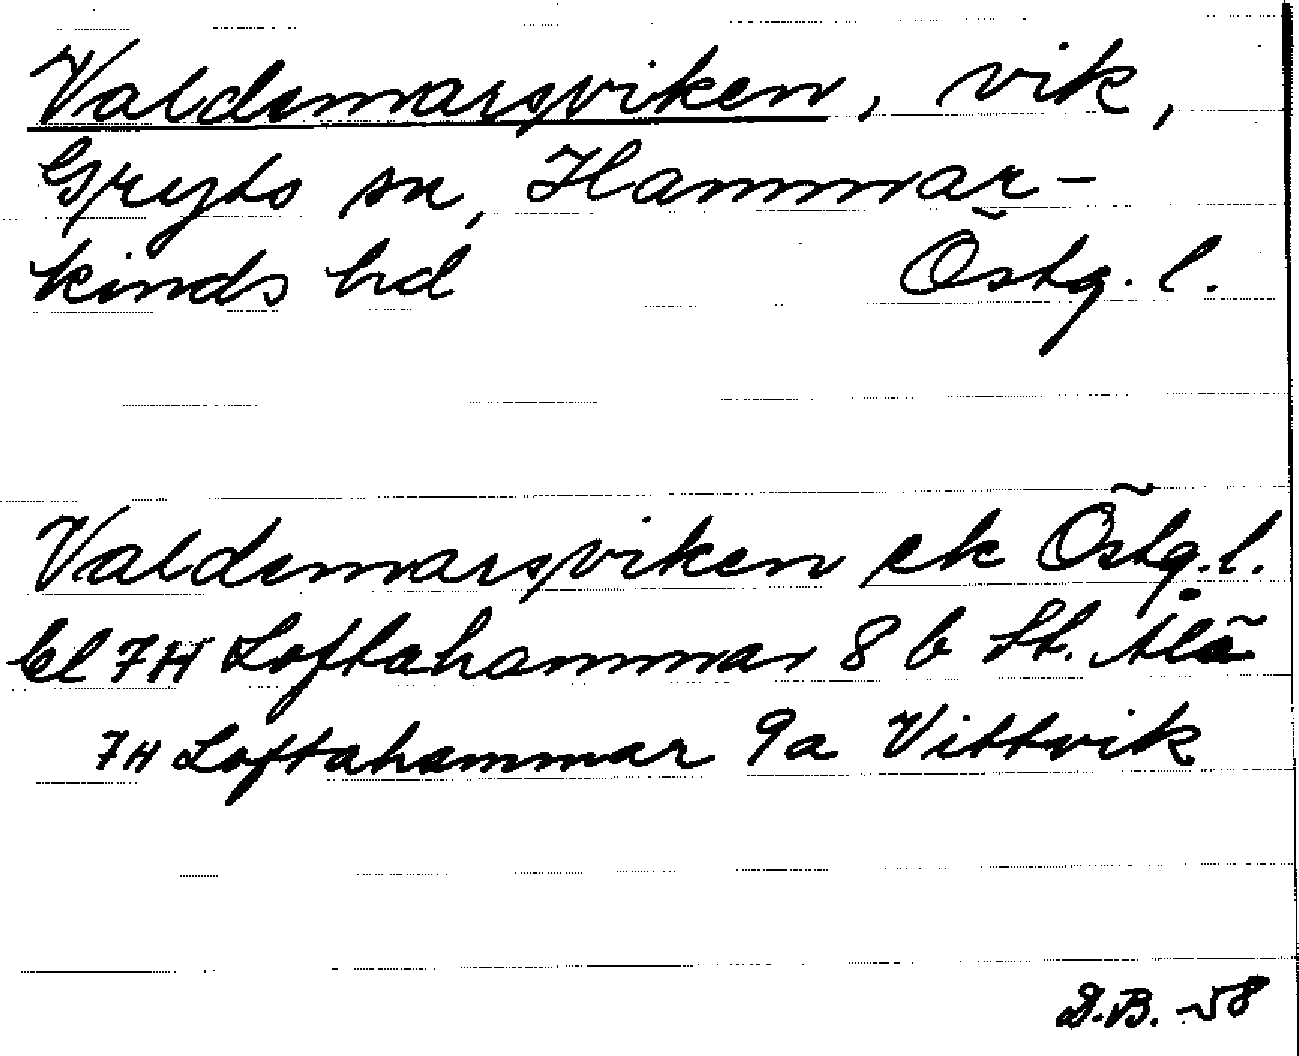 Valdemarsviken, vik,
Gryts sn, Hammar-
kinds hd Östg. l.
Valdemarsviken ek Östg. l.
bl 7H Loftahammar 8 b St. Alö
7H Loftahammar 9a Vittvik
D.B. -58